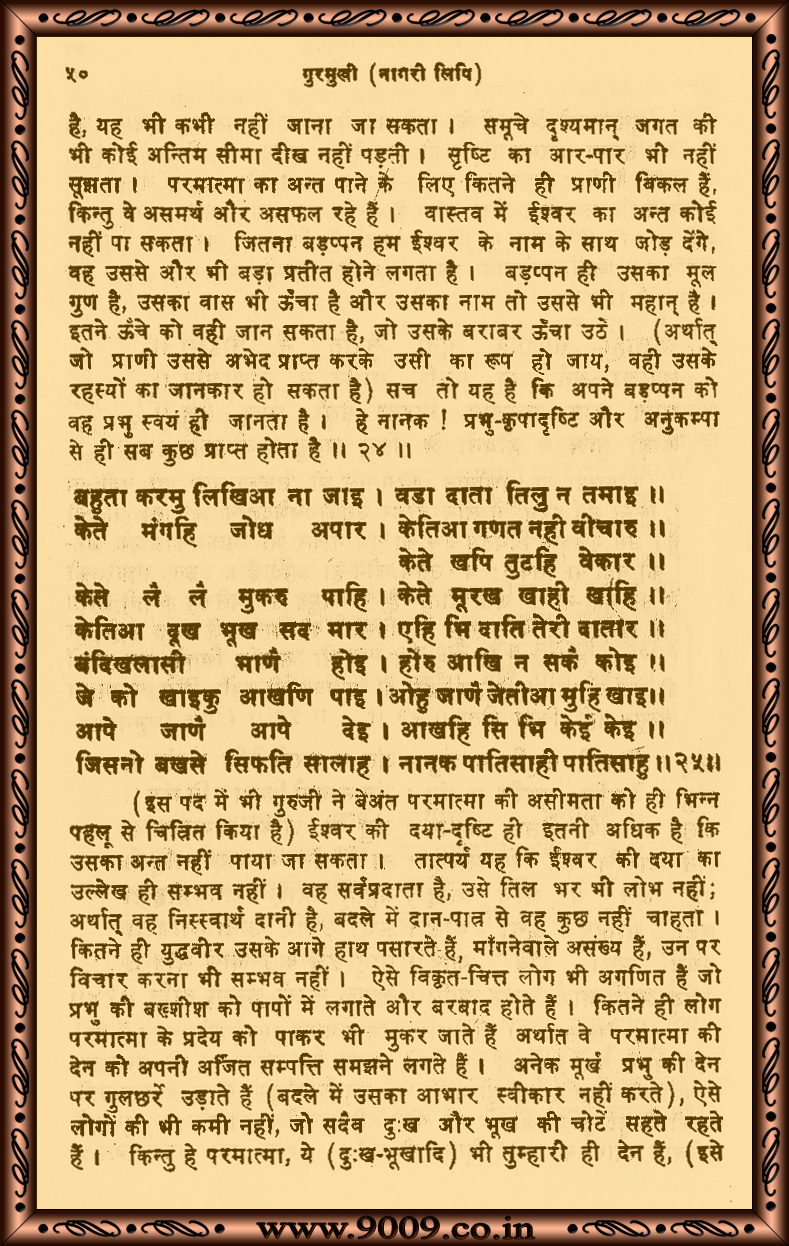 ५० गुरमुखी (नागरी लिपि)
है, यह भी कभी नहीं जाना जा सकता । समूचे दृश्यमान् जगत की
भी कोई अन्तिम सीमा दीख नहीं पड़ती । सृष्टि का आर-पार भी नहीं
सूझता । परमात्मा का अन्त पाने के लिए कितने ही प्राणी बिकल हैं,
किन्तु वे असमर्थ और असफल रहे हैं । वास्तव में ईश्वर का अन्त कोई
नहीं पा सकता । जितना बड़प्पन हम ईश्वर के नाम के साथ जोड़ देंगे,
वह उससे और भी बड़ा प्रतीत होने लगता है । बड़प्पन ही उसका मूल
गुण है, उसका वास भी ऊँचा है और उसका नाम तो उससे भी महान् है ।
इतने ऊँचे को वही जान सकता है, जो उसके बराबर ऊँचा उठे । (अर्थात्
जो प्राणी उससे अभेद प्राप्त करके उसी का रूप हो जाय, वही उसके
रहस्यों का जानकार हो सकता है) सच तो यह है कि अपने बड़प्पन को
वह प्रभु स्वयं ही जानता है । हे नानक ! प्रभु-कृपादृष्टि और अनुकम्पा
से ही सब कुछ प्राप्त होता है ॥ २४ ॥
बहुता करमु लिखिआ ना जाइ । वडा दाता तिलु न तमाइ ॥
केते मंगहि जोध अपार । केतिआ गणत नही वीचारु ॥
केते खपि तुटहि वेकार ॥
केते लै लै मुकरु पाहि । केते मूरख खाही खाहि ॥
केतिआ दूख भूख सद मार । एहि भि दाति तेरी दातार ॥
बंदिखलासी भाणै होइ । होरु आखि न सकै कोइ ॥
जे को खाइकु आखणि पाइ । ओहु जाणै जेतीआ मुहि खाइ॥
आपे जाणै आपे देइ । आखहि सि भि केई केइ ॥
जिसनो बखसे सिफति सालाह । नानक पातिसाही पातिसाहु॥२५॥
(इस पद में भी गुरुजी ने बेअंत परमात्मा की असीमता को ही भिन्न
पहलू से चित्रित किया है) ईश्वर की दया-दृष्टि ही इतनी अधिक है कि
उसका अन्त नहीं पाया जा सकता । तात्पर्य यह कि ईश्वर की दया का
उल्लेख ही सम्भव नहीं । वह सर्वप्रदाता है, उसे तिल भर भी लोभ नहीं;
अर्थात् वह निस्स्वार्थ दानी है, बदले में दान-पात्र से वह कुछ नहीं चाहता ।
कितने ही युद्धवीर उसके आगे हाथ पसारते हैं, माँगनेवाले असंख्य हैं, उन पर
विचार करना भी सम्भव नहीं । ऐसे विकृत-चित्त लोग भी अगणित हैं जो
प्रभु की बख्शीश को पापों में लगाते और बरबाद होते हैं । कितने ही लोग
परमात्मा के प्रदेय को पाकर भी मुकर जाते हैं अर्थात वे परमात्मा की
देन को अपनी अर्जित सम्पत्ति समझने लगते हैं । अनेक मूर्ख प्रभु की देन
पर गुलछर्रे उड़ाते हैं (बदले में उसका आभार स्वीकार नहीं करते), ऐसे
लोगों की भी कमी नहीं, जो सदैव दुःख और भूख की चोटें सहते रहते
हैं । किन्तु हे परमात्मा, ये (दुःख-भूखादि) भी तुम्हारी ही देन हैं, (इसे
www.9009.co.in